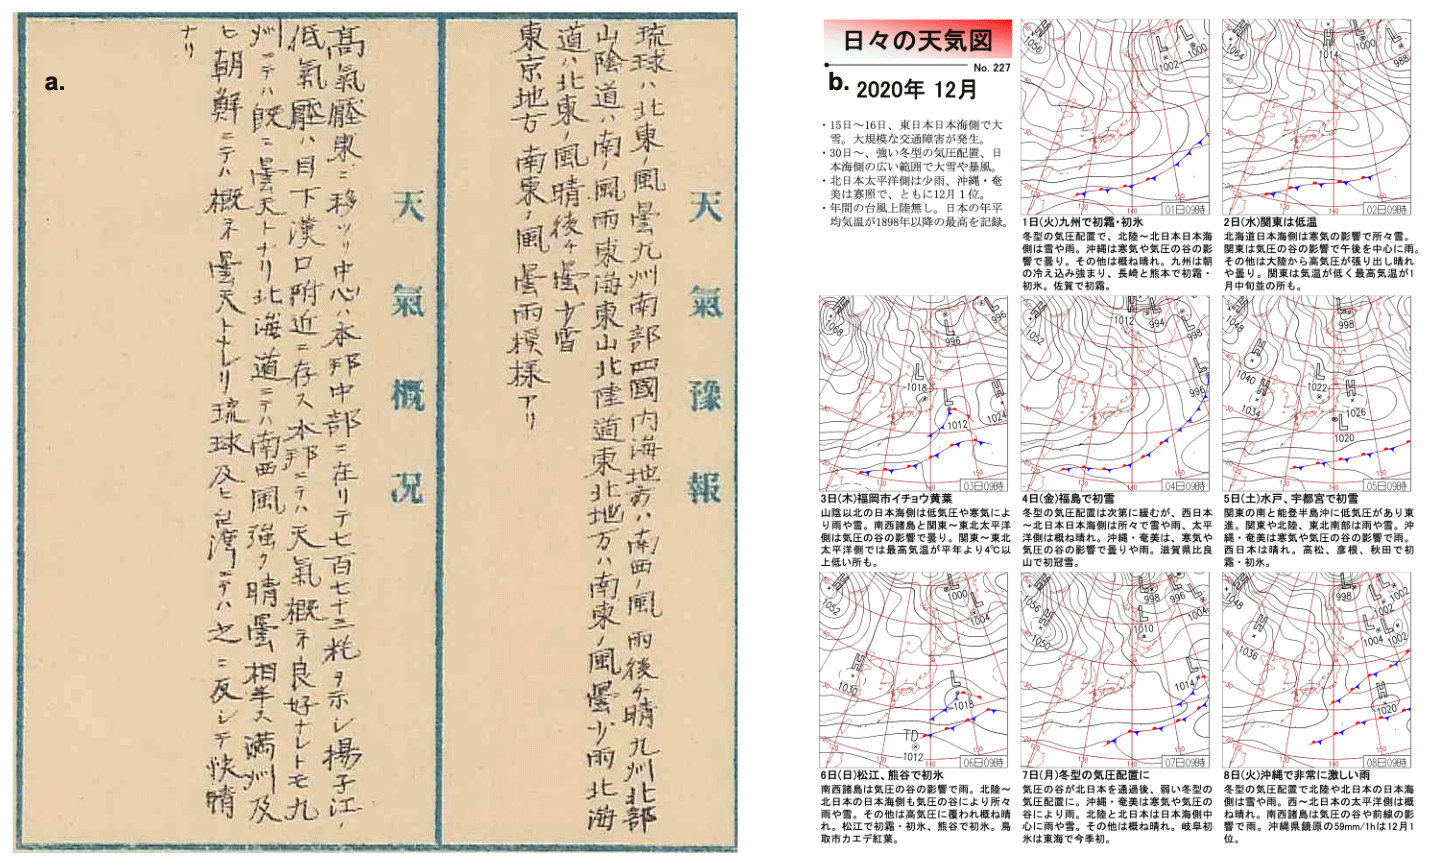 a.
天氣豫報
琉球ハ北東ノ風曇九州南部四國内海地方ハ南西ノ風雨後チ晴九州北部
山陰道ハ南ノ風雨東海東山北陸道東北地方ハ南東ノ風曇少雨北海
道ハ北東ノ風晴後チ曇少雪
東京地方南東ノ風曇雨模様アリ
天氣概况
髙氣壓東ニ移ツリ中心ハ本邦中部ニ在リテ七百七十三粍ヲ示シ揚子江ノ
低氣壓ハ目下漢口附近ニ存ス本邦ニテハ天氣概ネ良好ナレトモ九
州ニテハ既ニ曇天トナリ北海道ニテハ南西風強ク晴曇相半ス満州及
ヒ朝鮮ニテハ概ネ曇天トナレリ琉球及ヒ台湾ニテハ之ニ反シテ快晴
ナリ
日々の天気図
No. 227
b.
2020年 12月
・15日～16日、東日本日本海側で大
雪。大規模な交通障害が発生。
・30日～、強い冬型の気圧配置、日
本海側の広い範囲で大雪や暴風。
・北日本太平洋側は少雨、沖縄・奄
美は寡照で、ともに12月1位。
・年間の台風上陸無し。日本の年平
均気温が1898年以降の最高を記録。
1056
H
L
L
1002
1000
01日09時
1日(火)九州で初霜・初氷
冬型の気圧配置で、北陸～北日本日本海
側は雪や雨。沖縄は寒気や気圧の谷の影
響で曇り。その他は概ね晴れ。九州は朝
の冷え込み強まり、長崎と熊本で初霜・
初氷。佐賀で初霜。
1064
H
H
1014
L
1000
L
988
02日09時
2日(水)関東は低温
北海道日本海側は寒気の影響で所々雪。
関東は気圧の谷の影響で午後を中心に雨。
その他は大陸から高気圧が張り出し晴れ
や曇り。関東は気温が低く最高気温が1
月中旬並の所も。
1068
H
L
996
L
996
L
1018
L
1012
H
1024
03日09時
3日(木)福岡市イチョウ黄葉
山陰以北の日本海側は低気圧や寒気によ
り雨や雪。南西諸島と関東～東北太平洋
側は気圧の谷の影響で曇り。関東～東北
太平洋側では最高気温が平年より4℃以
上低い所も。
1052
H
H
1012
L
994
L
998
L
996
04日09時
4日(金)福島で初雪
冬型の気圧配置は次第に緩むが、西日本
～北日本日本海側は所々で雪や雨、太平
洋側は概ね晴れ。沖縄・奄美は、寒気や
気圧の谷の影響で曇りや雨。滋賀県比良
山で初冠雪。
1048
H
L
998
H
1040
H
1034
L
1022
H
1026
L
1020
05日09時
5日(土)水戸、宇都宮で初雪
関東の南と能登半島沖に低気圧があり東
進。関東や北陸、東北南部は雨や雪。沖
縄・奄美は寒気や気圧の谷の影響で雨。
西日本は晴れ。高松、彦根、秋田で初
霜・初氷。
1052
H
L
1000
L
1004
H
1030
L
1018
TD
1012
06日09時
6日(日)松江、熊谷で初氷
南西諸島は気圧の谷の影響で雨。北陸～
北日本の日本海側も気圧の谷により所々
雨や雪。その他は高気圧に覆われ概ね晴
れ。松江で初霜・初氷、熊谷で初氷。鳥
取市カエデ紅葉。
1056
H
H
1050
L
998
L
996
L
1004
L
1010
L
1014
07日09時
7日(月)冬型の気圧配置に
気圧の谷が北日本を通過後、弱い冬型の
気圧配置に。沖縄・奄美は寒気や気圧の
谷により雨。北陸と北日本は日本海側中
心に雨や雪。その他は概ね晴れ。岐阜初
氷は東海で今季初。
1048
H
H
1036
L
1002
L
1002
L
1004
L
1002
H
1020
08日09時
8日(火)沖縄で非常に激しい雨
冬型の気圧配置で北陸や北日本の日本海
側は雪や雨。西～北日本の太平洋側は概
ね晴れ。南西諸島は気圧の谷や前線の影
響で雨。沖縄県鏡原の59mm/1hは12月1
位。